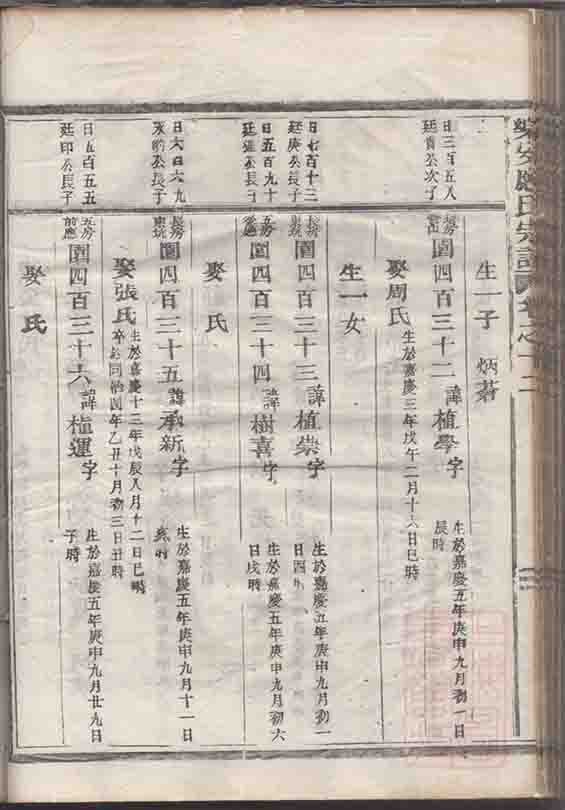 氏宗譜 卷之十二
生一子 炳若
日三百五人
廷 公次子
圓四百三十二 諱植學字
生於嘉慶五年庚申九月初一日
辰時
娶周氏 生於嘉慶三年戊午二月十六日巳時
生一女
日七百十三
廷庚公長子
長房
圓四百三十三 諱植崇字
生於嘉慶五年庚申九月初一
日酉時
日五百九十
廷 公長子
五房
圓四百三十四 諱樹喜字
生於嘉慶五年庚申九月初六
日戌時
娶 氏
日六百六九
公長子
長房
圓四百三十五 諱承新字
生於嘉慶五年庚申九月十一日
時
娶張氏 生於嘉慶十三年戊辰八月十二日巳時
卒於同治四年乙丑十月初三日丑時
日五百五五
廷印公長子
五房
前應
圓四百三十六 諱植運字
生於嘉慶五年庚申九月廿九日
子時
娶 氏